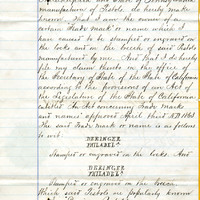 manufacturer of Pistols do hereby make
known, That I am the owner of a
certain Trade Mark or name which I
have caused to be stamped or engraved on
the locks and on the breech of said Pistols
manufactured by me. And that I do hereby
file my claim thereto in the office of
the Secretary of State of the State of California
according to the provisions of an Act of
the Legislature of the State of California
entitled An Act concerning Trade Marks
and names approved April third A.D. 1863
The said Trade Mark or name is as follows
to wit.
DERINGER
PHILADELᴬ
Stamped or engraved on the locks. And
DERINGER
PHILADELᴬ
Stamped or engraved on the breech
Which said Pistols are popularly known